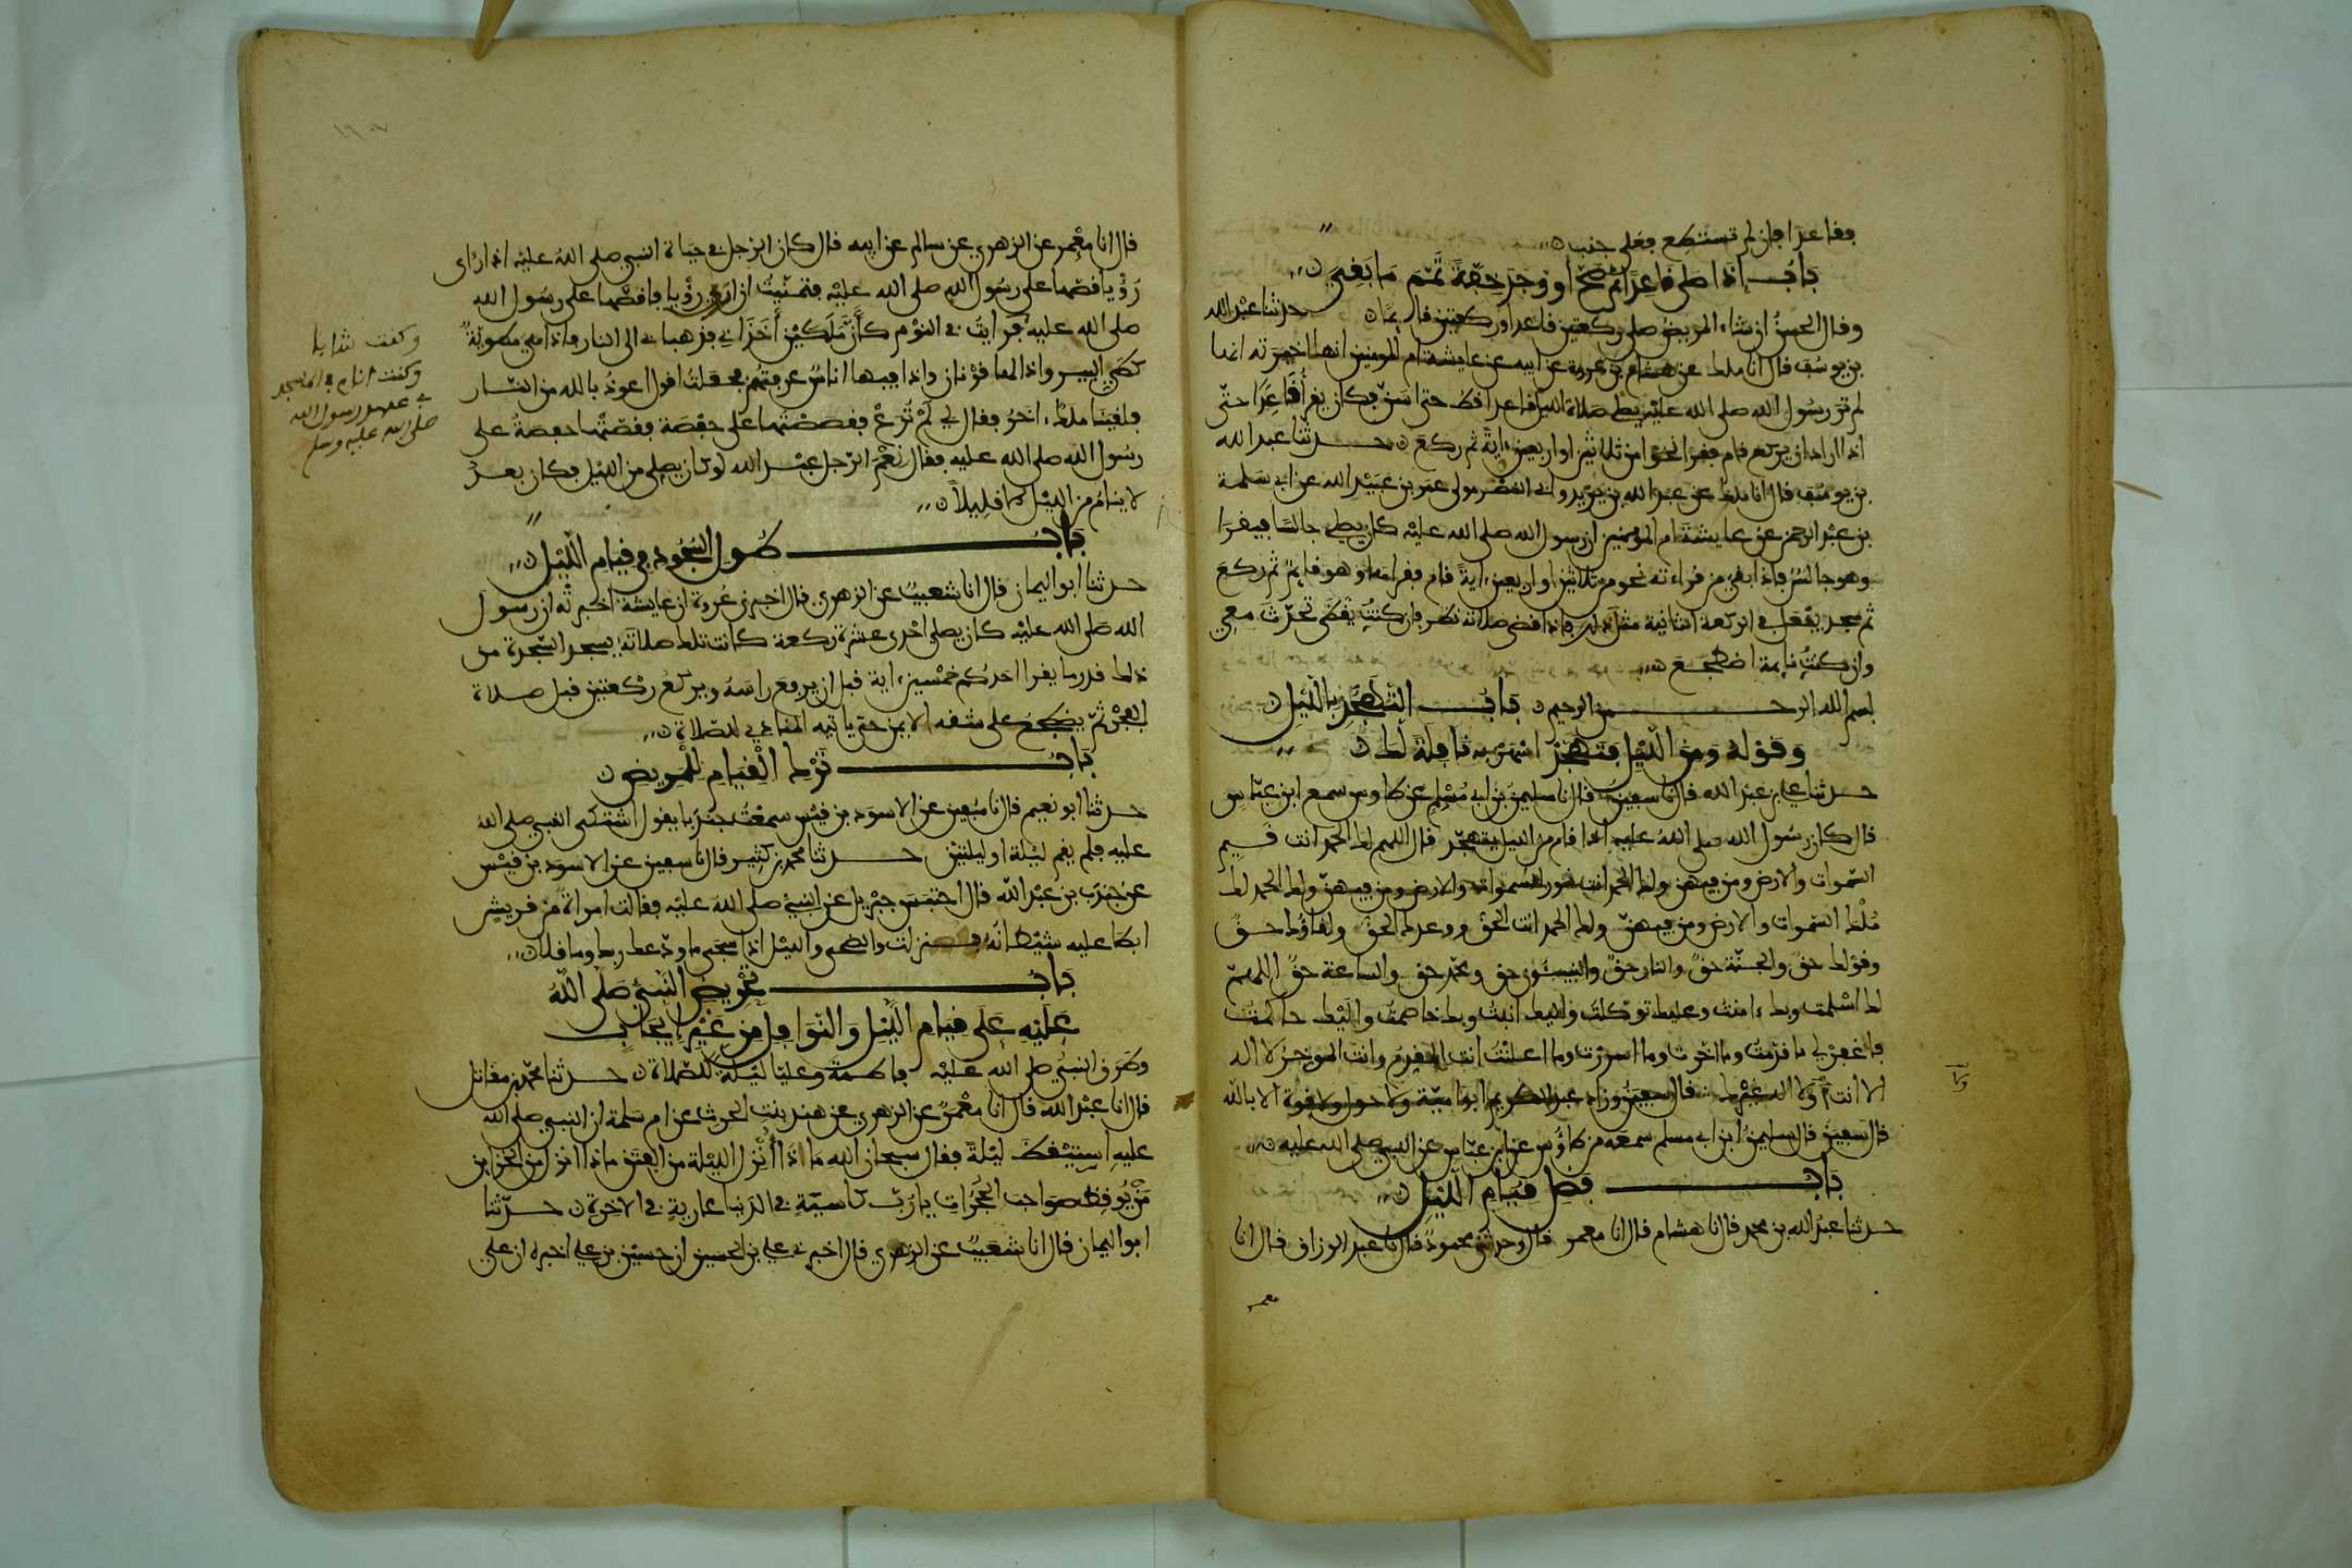 فقاعدا فإن لم تستطع فعلى جنب
باب إذا صلى قاعدا ثم صح أو وجد خفة تمم ما بقي
وقال الحسن إن شاء المريض صلى ركعتين قاعدا وركعتين قائما حدثنا عبد الله
بن يوسف قال انا ملك عن هشام بن عروة عن أبيه عن عايشة أم المومنين أنها أخبرته أنها
لم تر رسول الله صلى الله عليه يصلي صلاة الليل قاعدا قط حتى أسن فكان يقرأ قاعدا حتى
إذا أراد أن يركع قام فقرأ نحوا من ثلاثين أو أربعين ءاية ثم ركع حدثنا عبد الله
بن يوسف قال انا ملك عن عبد الله بن يزيد وأبي النضر مولى عمر بن عبيد الله عن أبي سلمة
بن عبد الرحمن عن عايشة أم المؤمنين أن رسول الله صلى الله عليه كان يصلي جالسا فيقرأ
وهو جالس فإذا بقي من قراءته نحو من ثلاثين أو أربعين ءاية قام فقرأها وهو قايم ثم ركع
ثم سجد يفعل في الركعة الثانية مثل ذلك فإذا قضى صلاته نظر فإن كنت يقظى تحدث معي
وإن كنت نايمة اضطجع
بسم الله الرحمن الرحيم باب التهجد بالليل
وقوله ومن الليل فتهجد اسهر به نافلة لك
حدثنا علي بن عبد الله قال نا سفين قال نا سليمن بن أبي مسلم عن طاوس سمع ابن عباس
قال كان رسول الله صلى الله عليه إذا قام من الليل يتهجد قال اللهم لك الحمد أنت قيم
السموات والارض ومن فيهن ولك الحمد أنت نور السموات والارض ومن فيهن ولك الحمد لك
ملك السموات والارض ومن فيهن ولك الحمد أنت الحق ووعدك الحق ولقاؤك حق
وقولك حق والجنة حق والنار حق والنبيئون حق ومحمد حق والساعة حق اللهم
لك أسلمت وبك ءامنت وعليك توكلت وإليك أنبت وبك خاصمت وإليك حاكمت
فاغفر لي ما قدمت وما أخرت وما أسررت وما أعلنت أنت المقدم وأنت الموخر لا اله
الا أنت أو لا اله غيرك قال سفين وزاد عبد الكريم أبو أمية ولا حول ولا قوة الا بالله
قال سفين قال سليمن ابن أبي مسلم سمعه من طاوس عن ابن عباس عن النبي صلى الله عليه
باب فضل قيام الليل
حدثنا عبد الله بن محمد قال نا هشام قال انا معمر قال وحدثني محمود قال نا عبد الرزاق قال انا
معمر
قال انا معمر عن الزهري عن سالم عن أبيه قال كان الرجل في حياة النبي صلى الله عليه إذا رأى
رؤيا قصها على رسول الله صلى الله عليه فتمنيت أن أرى رؤيا فأقصها على رسول الله
صلى الله عليه فرأيت في النوم كأن ملكين أخذاني فذهبا بي الى النار فإذا هي مطوية
كطي البير وإذا لها قرنان وإذا فيها أناس عرفتهم فجعلت أقول أعوذ بالله من النار
فلقينا ملك ءاخر فقال لي لم ترع فقصصتها على حفصة فقصتها حفصة على
رسول الله صلى الله عليه فقال نعم الرجل عبد الله لو كان يصلي من الليل فكان بعد
لا ينام من الليل إلا قليلا
وكنت شابا
وكنت أنام في المسجد
في عهد رسول الله
صلى الله عليه وسلم
باب طول السجود في قيام الليل
حدثنا أبو اليمان قال انا شعيب عن الزهري قال أخبرني عروة أن عايشة أخبرته أن رسول
الله صلى الله عليه كان يصلي إحدى عشرة ركعة كانت تلك صلاته يسجد السجدة من
ذلك قدر ما يقرأ أحدكم خمسين ءاية قبل أن يرفع رأسه ويركع ركعتين قبل صلاة
الفجر ثم يضطجع على شقه الايمن حتى ياتيه المنادي للصلاة
باب ترك القيام للمريض
حدثنا أبو نعيم قال نا سفين عن الاسود بن قيس سمعت جندبا يقول اشتكى النبي صلى الله
عليه فلم يقم ليلة أو ليلتين حدثنا محمد بن كثير قال نا سفين عن الاسود بن قيس
عن جندب بن عبد الله قال احتبس جبريل عن النبي صلى الله عليه فقالت امرأة من قريش
أبطأ عليه شيطانه فنزلت والضحى والليل إذا سجى ما ودعك ربك وما قلى
باب تحريض النبي صلى الله
عليه على قيام الليل والنوافل من غير إيجاب
وطرق النبي صلى الله عليه فاطمة وعليا ليلة للصلاة حدثنا محمد بن مقاتل
قال انا عبد الله قال انا معمر عن الزهري عن هند بنت الحرث عن أم سلمة أن النبي صلى الله
عليه استيقظ ليلة فقال سبحان الله ماذا أنزل الليلة من الفتن ماذا أنزل من الخزاين
من يوقظ صواحب الحجرات يا رب كاسية في الدنيا عارية في الاخرة حدثنا
أبو اليمان قال انا شعيب عن الزهري قال أخبرني علي بن الحسين أن حسين بن علي أخبره أن علي